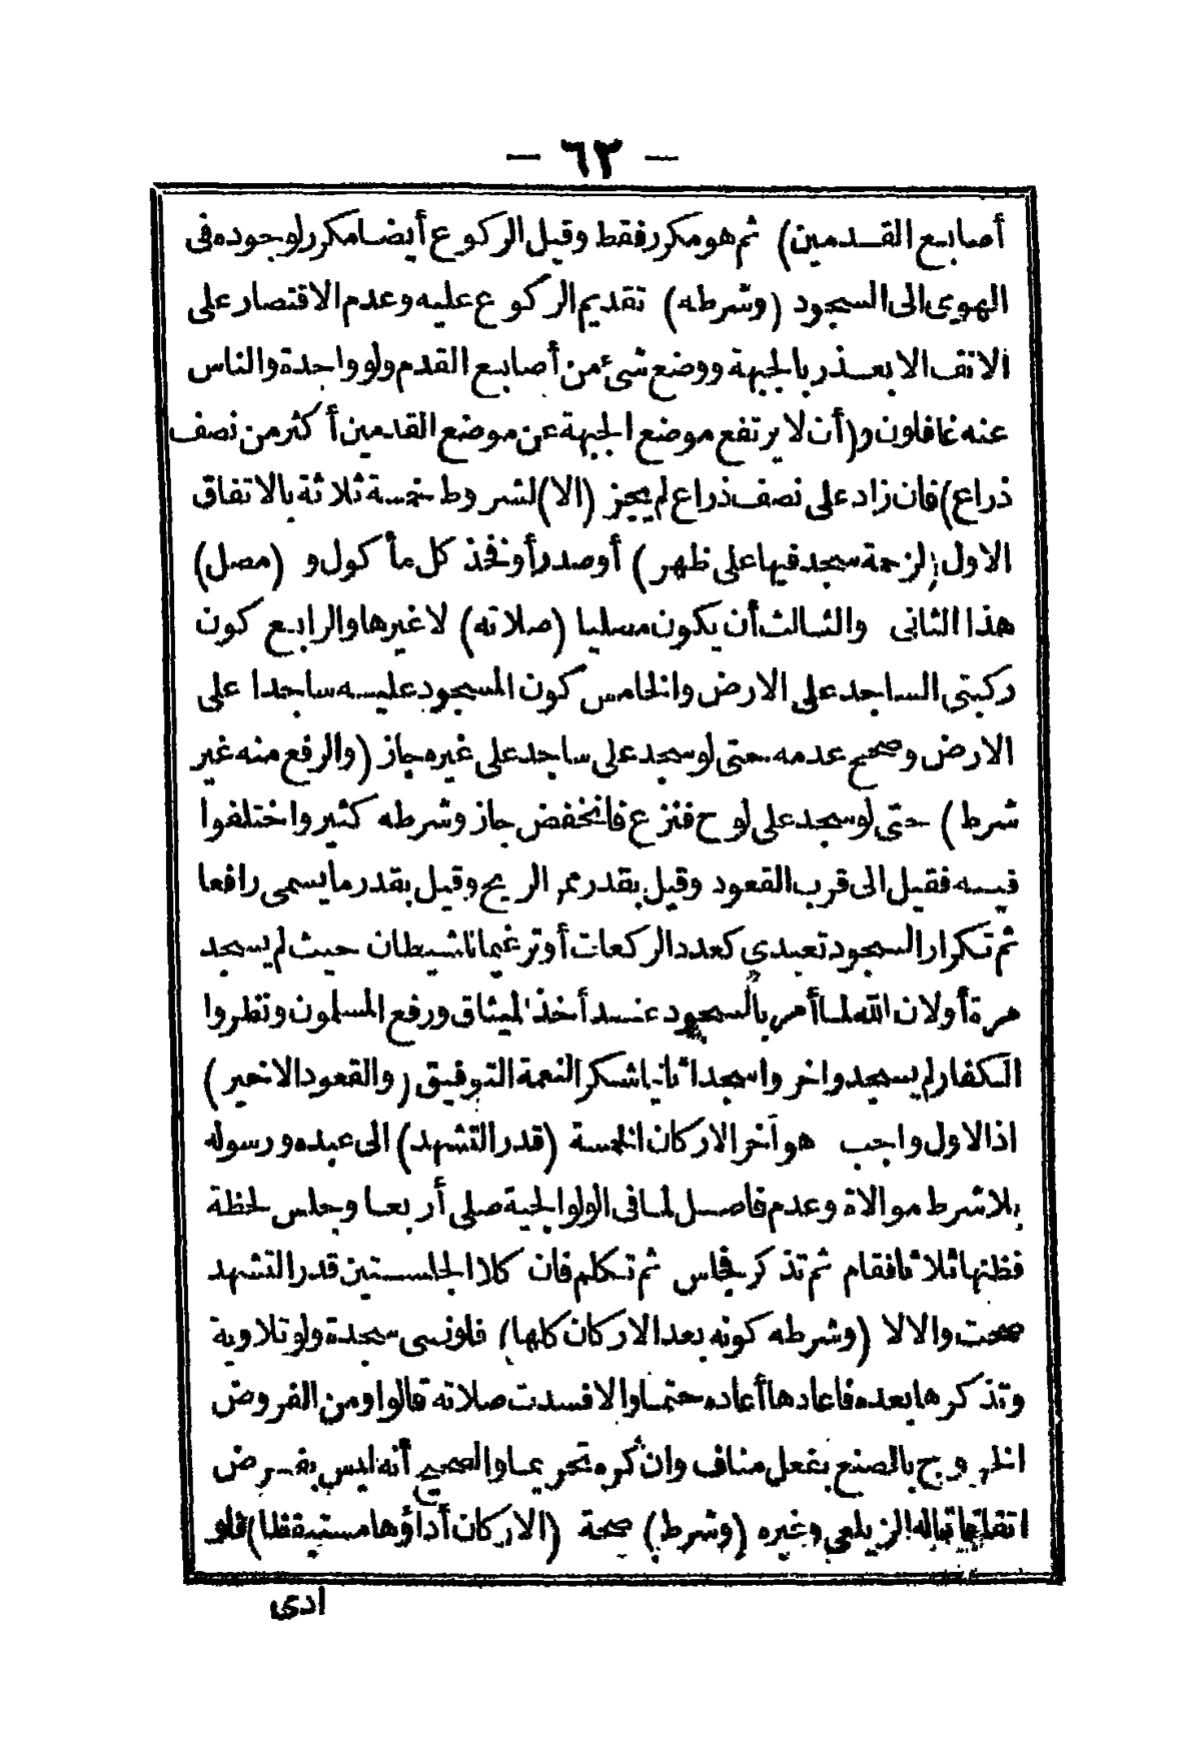 — ٦٣ —
أصابع القدمين) ثم هو مكرر فقط وقيل الركوع أيضا مكرر لوجوده فى
الهوى الى السجود (وشرطه) تقديم الركوع عليه وعدم الاقتصار على
الانف الا بعذر بالجبهة ووضع شئ من أصابع القدم ولو واحدة والناس
عنه غافلون و(أن لا يرتفع موضع الجبهة عن موضع القدمين أكثر من نصف
ذراع) فان زاد على نصف ذراع لم يجز (الا) لشروط خمسة ثلاثة بالاتفاق
الاول (لزحمة سجد فيها على ظهر) أو صدر أو فخذ كل مأكول و (مصل)
هذا الثانى والثالث أن يكون مصليا (صلاته) لا غيرها والرابع كون
ركبتى الساجد على الارض والخامس كون المسجود عليه ساجدا على
الارض وصحح عدمه حتى لو سجد على ساجد على غيره جاز (والرفع منه غير
شرط) حتى لو سجد على لوح فنزع فانخفض جاز وشرطه كثير واختلفوا
فيه فقيل الى قرب القعود وقيل بقدر ممر الريح وقيل بقدر ما يسمى رافعا
ثم تكرار السجود تعبدى كعدد الركعات أو ترغيما للشيطان حيث لم يسجد
مرة أو لان الله لما أمر بالسجود عند أخذ الميثاق ورفع المسلمون ونظروا
الكفار لم يسجدوا خروا سجدا ثانيا شكرا لنعمة التوفيق (والقعود الاخير)
اذ الاول واجب هو آخر الاركان الخمسة (قدر التشهد) الى عبده ورسوله
بلا شرط موالاة وعدم فاصل لما فى الولوالجية صلى أربعا وجلس لحظة
فظنها ثلاثا فقام ثم تذكر فجلس ثم تكلم فان كلا الجلستين قدر التشهد
صحت والا لا (وشرطه كونه بعد الاركان كلها) فلو نسى سجدة ولو تلاوية
وتذكرها بعده فاعادها أعاده حتما والا فسدت صلاته قالوا ومن الفروض
الخروج بالصنع بفعل مناف وان كره تحريما والصحيح أنه ليس بفرض
اتفاقا قاله الزيلعى وغيره (وشرط) صحة (الاركان أداؤها مستيقظا) فلو
ادى